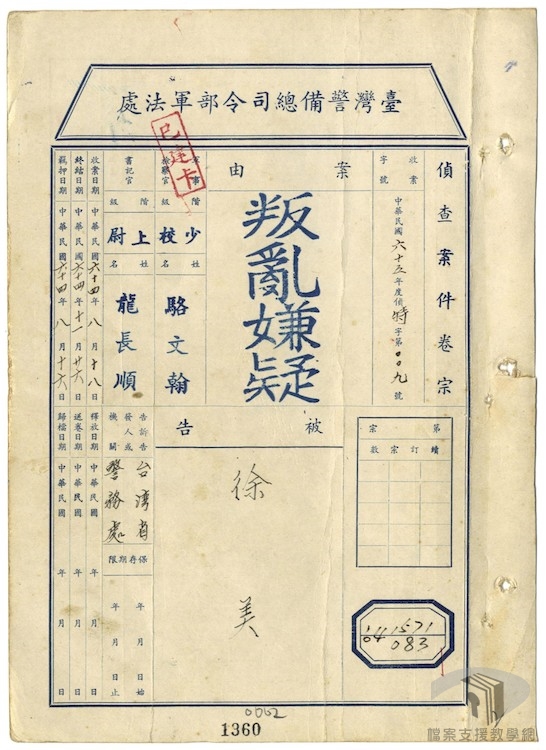 臺灣警備總司令部軍法處
偵查案件卷宗
收案字號
中華民國六十五年度偵特字第〇〇九號
案由
叛亂嫌疑
被告
徐美
第宗
續訂宗數
041571
083
軍事檢察官
階級
少校
姓名
駱文翰
書記官
階級
上尉
姓名
龍長順
告訴告發人或機關
台灣省警務處
保存期限
年月日始
年月日止
收案日期 中華民國六十四年八月十八日
終結日期 中華民國六十四年十一月廿六日
羈押日期 中華民國六十四年八月十六日
釋放日期 中華民國 年 月 日
送卷日期 中華民國 年 月 日
歸檔日期 中華民國 年 月 日
已建卡
0002
1360
檔案支援教學網